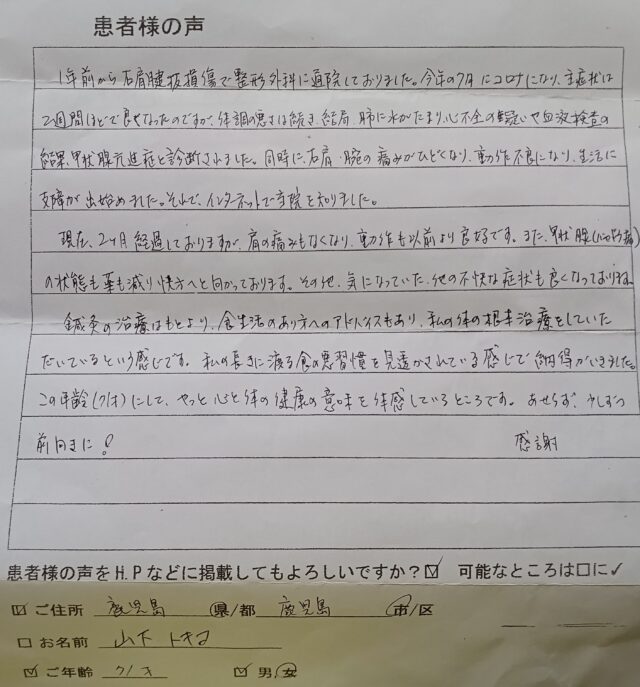 患者様の声
1年前から右肩腱板損傷で整形外科に通院しておりました。今年の7月にコロナになり、主症状は
2週間ほどで良くなったのですが、体調の悪さは続き、結局、肺に水がたまり、心不全の疑いや血液検査の
結果、甲状腺亢進症と診断されました。同時に、右肩・腕の痛みがひどくなり、動作不良になり、生活に
支障が出始めました。それで、インターネットで当院を知りました。
現在、2ヶ月経過しておりますが、肩の痛みもなくなり、動作も以前より良好です。また、甲状腺
の状態も薬も減り快方へと向かっております。その他、気になっていた、他の不快な症状も良くなっております。
鍼灸の治療はもとより、食生活のあり方へのアドバイスもあり、私の体の根本治療をしていた
だいているという感じです。私の長きに渡る食の悪習慣を見透かされている感じで納得がいきました。
この年齢(71才)にして、やっと心と体の健康の意味を体感しているところです。あせらず、少しずつ
前向きに! 感謝
患者様の声をH.Pなどに掲載してもよろしいですか?☑ 可能なところは口に✓
☑ご住所 鹿児島 県/都 鹿児島 市/区
□お名前 山下 トキ子
☑ご年齢 71才 ☑男・女